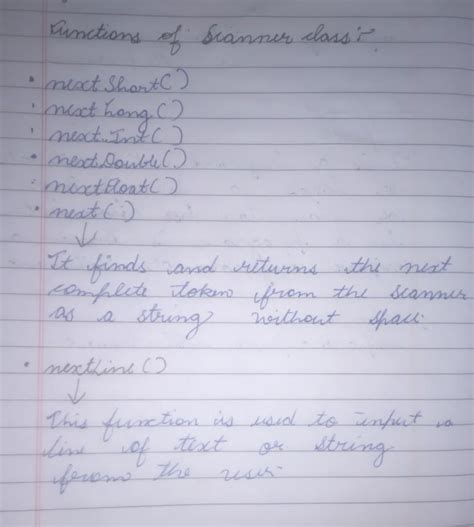 Functions of Scanner class:-
• nextShort()
• nextLong()
• next.Int()
• nextDouble()
• nextFloat()
• next()
↓
It finds and returns the next
complete token from the scanner
as a string without space.
• nextLine()
↓
This function is used to input a
line of text or string
from the user.